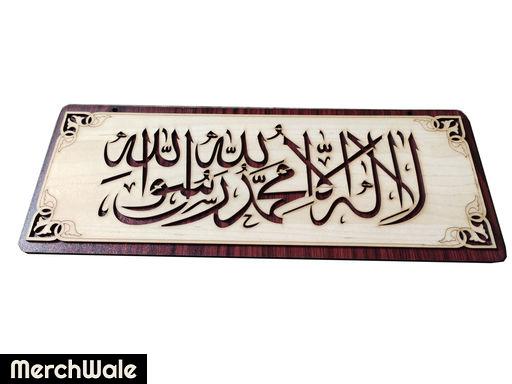 لا إله إلا الله محمد رسول الله
MerchWale